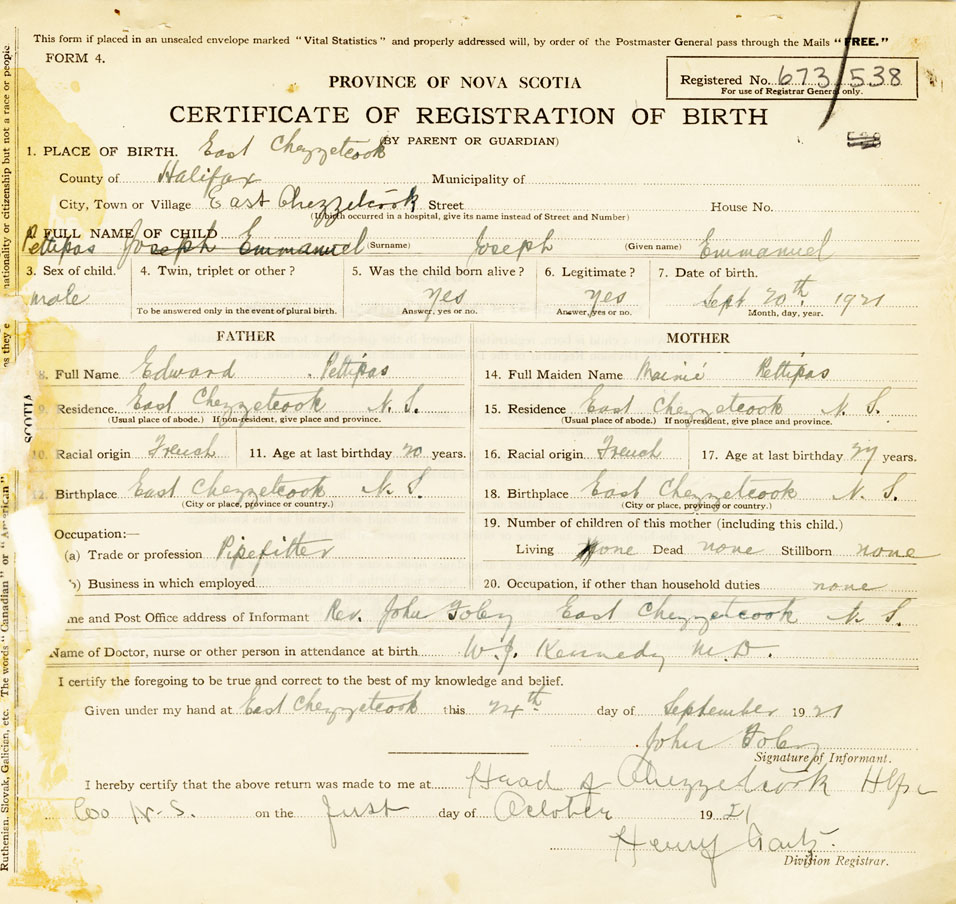 This form if placed in an unsealed envelope marked "Vital Statistics" and properly addressed will, by order of the Postmaster General pass through the Mails "FREE."
FORM 4.
PROVINCE OF NOVA SCOTIA
Registered No. 673/538
For use of Registrar General only.
CERTIFICATE OF REGISTRATION OF BIRTH
(BY PARENT OR GUARDIAN)
1. PLACE OF BIRTH. East Chezzetcook
County of Halifax Municipality of
City, Town or Village East Chezzetcook Street House No.
(If birth occurred in a hospital, give its name instead of Street and Number)
FULL NAME OF CHILD
Pettipas Joseph Emmanuel (Surname) Joseph (Given name) Emmanuel
3. Sex of child. 4. Twin, triplet or other? 5. Was the child born alive? 6. Legitimate? 7. Date of birth.
male Yes Yes Sept 20th 1921
To be answered only in the event of plural birth. Answer, yes or no. Answer, yes or no. Month, day, year.
FATHER
8. Full Name Edward Pettipas
9. Residence East Chezzetcook N. S.
(Usual place of abode.) If non-resident, give place and province.
10. Racial origin French 11. Age at last birthday 20 years.
12. Birthplace East Chezzetcook N. S.
(City or place, province or country.)
Occupation:—
(a) Trade or profession Pipefitter
b) Business in which employed
MOTHER
14. Full Maiden Name Mainie Pettipas
15. Residence East Chezzetcook N. S.
(Usual place of abode.) If non-resident, give place and province.
16. Racial origin French 17. Age at last birthday 27 years.
18. Birthplace East Chezzetcook N. S.
(City or place, province or country.)
19. Number of children of this mother (including this child.)
Living none Dead none Stillborn none
20. Occupation, if other than household duties none
me and Post Office address of Informant Rev. John Foley East Chezzetcook N. S.
Name of Doctor, nurse or other person in attendance at birth W. J. Kennedy M.D.
I certify the foregoing to be true and correct to the best of my knowledge and belief.
Given under my hand at East Chezzetcook this 24th day of September 1921
John Foley
Signature of Informant.
I hereby certify that the above return was made to me at Head of Chezzetcook Hfx
Co N.S. on the first day of October 1921
Henry
Division Registrar.
Ruthenian, Slovak, Galician, etc. The words "Canadian" or "American"
as they
SCOTIA
nationality or citizenship but not a race or people